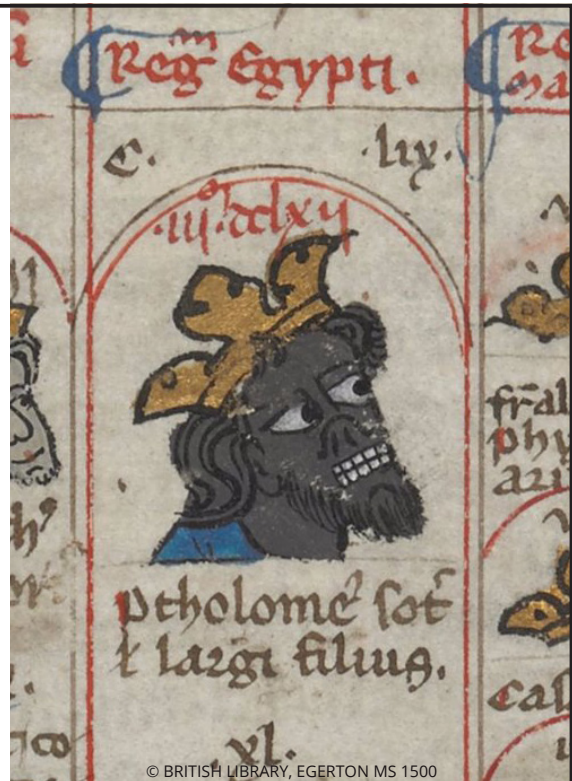 Reg̃ Egypti.
C. .lix.
.iii.dclxii
Ptholome' sot̃
ł largi filius.
.xl.
© BRITISH LIBRARY, EGERTON MS 1500